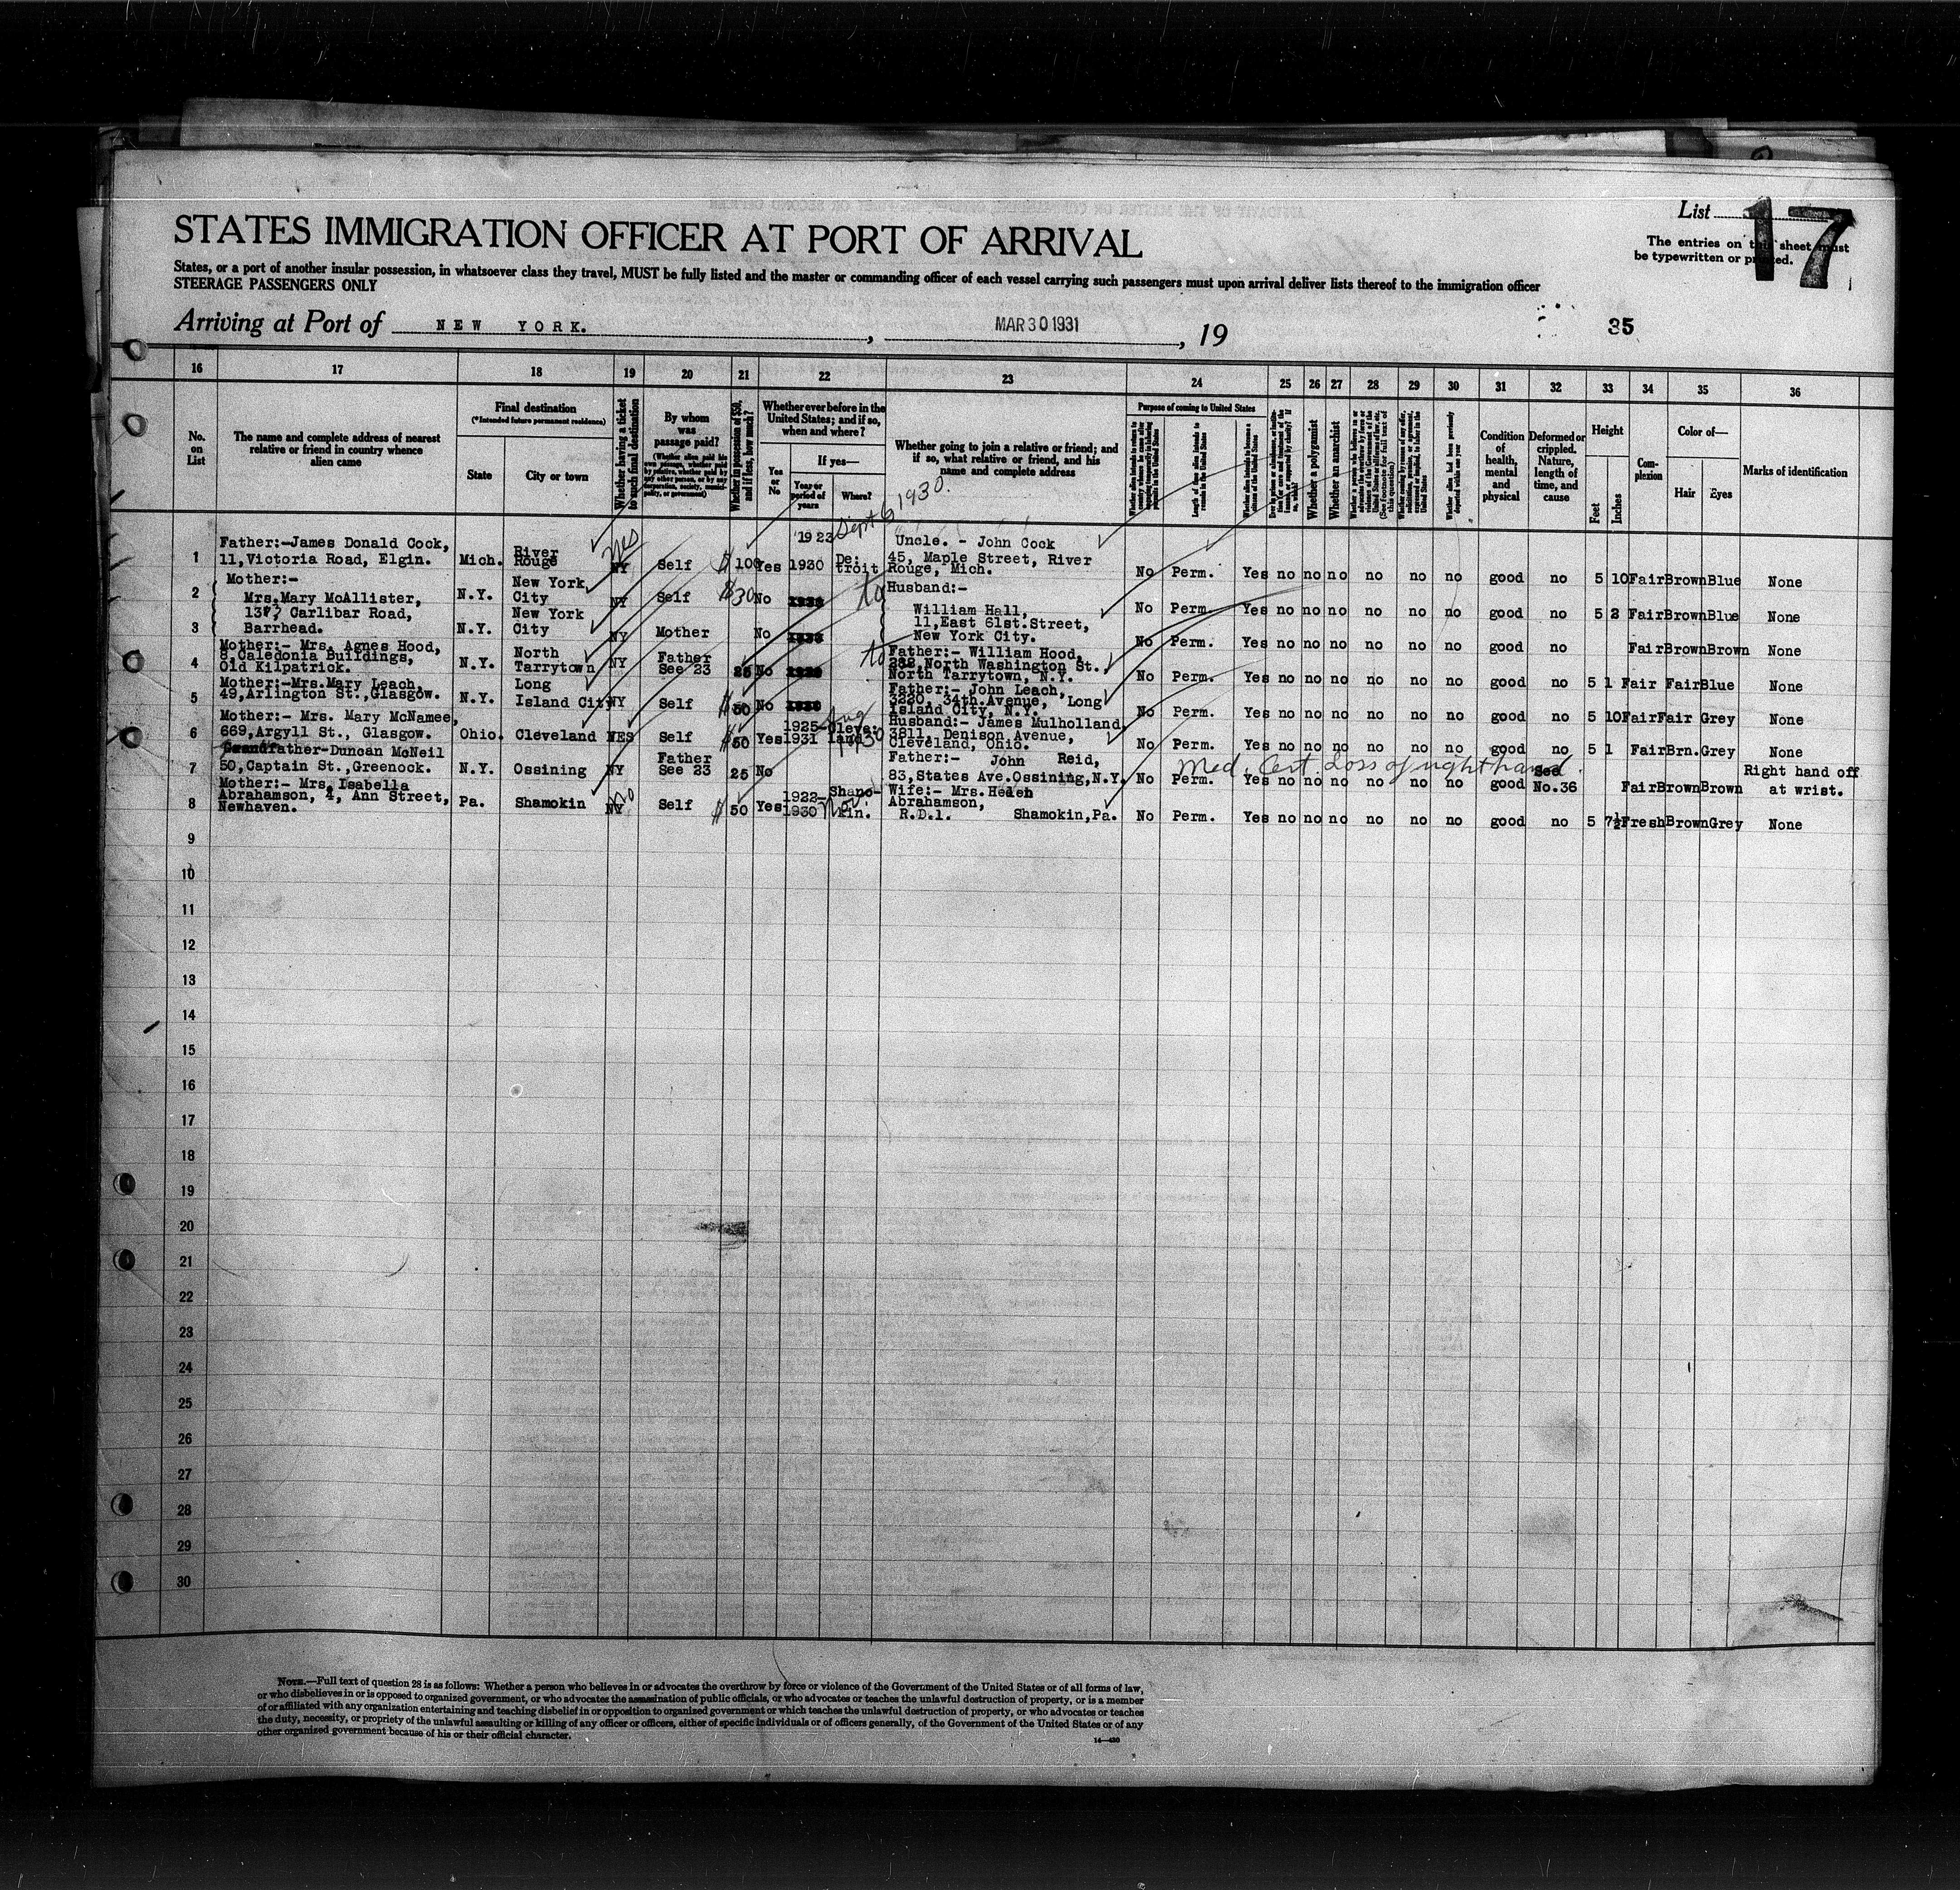 STATES IMMIGRATION OFFICER AT PORT OF ARRIVAL
List 17
The entries on this sheet must
be typewritten or printed.
States, or a port of another insular possession, in whatsoever class they travel, MUST be fully listed and the master or commanding officer of each vessel carrying such passengers must upon arrival deliver lists thereof to the immigration officer
STEERAGE PASSENGERS ONLY
Arriving at Port of NEW YORK. , MAR 30 1931 , 19
35
16 17 18 19 20 21 22 23 24 25 26 27 28 29 30 31 32 33 34 35 36
No. on List
The name and complete address of nearest relative or friend in country whence alien came
Final destination
(*Intended future permanent residence)
State
City or town
Whether having a ticket to such final destination
By whom was passage paid?
(Whether alien paid his own passage, whether paid by relative, whether paid by any other person, or by any corporation, society, municipality, or government)
Whether in possession of $50, and if less, how much?
Whether ever before in the United States; and if so, when and where?
Yes or No
If yes—
Year or period of years
Where?
Whether going to join a relative or friend; and if so, what relative or friend, and his name and complete address
Purpose of coming to United States
Whether a polygamist
Whether an anarchist
Condition of health, mental and physical
Deformed or crippled. Nature, length of time, and cause
Height
Feet
Inches
Complexion
Color of—
Hair
Eyes
Marks of identification
Sept 6, 1930.
1 Father:-James Donald Cock, 11,Victoria Road, Elgin. Mich. River Rouge yes NY Self $ 100 Yes 1923 1930 De: troit Uncle. - John Cock 45, Maple Street, River Rouge, Mich. No Perm. Yes no no no no no no good no 5 10 Fair Brown Blue None
2 Mother:- Mrs.Mary McAllister, N.Y. New York City NY Self $30 No to Husband:- William Hall, No Perm. Yes no no no no no no good no 5 2 Fair Brown Blue None
3 137, Carlibar Road, Barrhead. N.Y. New York City NY Mother No 11,East 61st.Street, New York City. No Perm. Yes no no no no no no good no Fair Brown Brown None
4 Mother:- Mrs. Agnes Hood, 8,Caledonia Buildings, Old Kilpatrick. N.Y. North Tarrytown NY Father See 23 25 No to Father:- William Hood, 282,North Washington St. North Tarrytown, N.Y. No Perm. Yes no no no no no no good no 5 1 Fair Fair Blue None
5 Mother:-Mrs.Mary Leach, 49,Arlington St.,Glasgow. N.Y. Long Island City NY Self $ 50 No Father:- John Leach, 3220, 34th.Avenue, Long Island City, N.Y. No Perm. Yes no no no no no no good no 5 10 Fair Fair Grey None
6 Mother:- Mrs. Mary McNamee, 669,Argyll St., Glasgow. Ohio. Cleveland YES Self $ 50 Yes 1925- 1931 Cleveland Aug 1930 Husband:- James Mulholland 3811, Denison Avenue, Cleveland, Ohio. No Perm. Yes no no no no no no good no 5 1 Fair Brn. Grey None
Med. Cert Loss of right hand.
7 Grandfather-Duncan McNeil 50,Captain St.,Greenock. N.Y. Ossining NY Father See 23 25 No Father:- John Reid, 83,States Ave.Ossining,N.Y. No Perm. Yes no no no no no no good See No.36 Fair Brown Brown Right hand off at wrist.
8 Mother:- Mrs. Isabella Abrahamson, 4, Ann Street, Newhaven. Pa. Shamokin no NY Self $ 50 Yes 1922- 1930 Nov Shamo- kin. Wife:- Mrs. Helen Abrahamson, R.D.1. Shamokin,Pa. No Perm. Yes no no no no no no good no 5 7½ Fresh Brown Grey None
9
10
11
12
13
14
15
16
17
18
19
20
21
22
23
24
25
26
27
28
29
30
NOTE.—Full text of question 28 is as follows: Whether a person who believes in or advocates the overthrow by force or violence of the Government of the United States or of all forms of law,
or who disbelieves in or is opposed to organized government, or who advocates the assassination of public officials, or who advocates or teaches the unlawful destruction of property, or is a member
of or affiliated with any organization entertaining and teaching disbelief in or opposition to organized government or which teaches the unlawful destruction of property, or who advocates or teaches
the duty, necessity, or propriety of the unlawful assaulting or killing of any officer or officers, either of specific individuals or of officers generally, of the Government of the United States or of any
other organized government because of his or their official character.
14—430